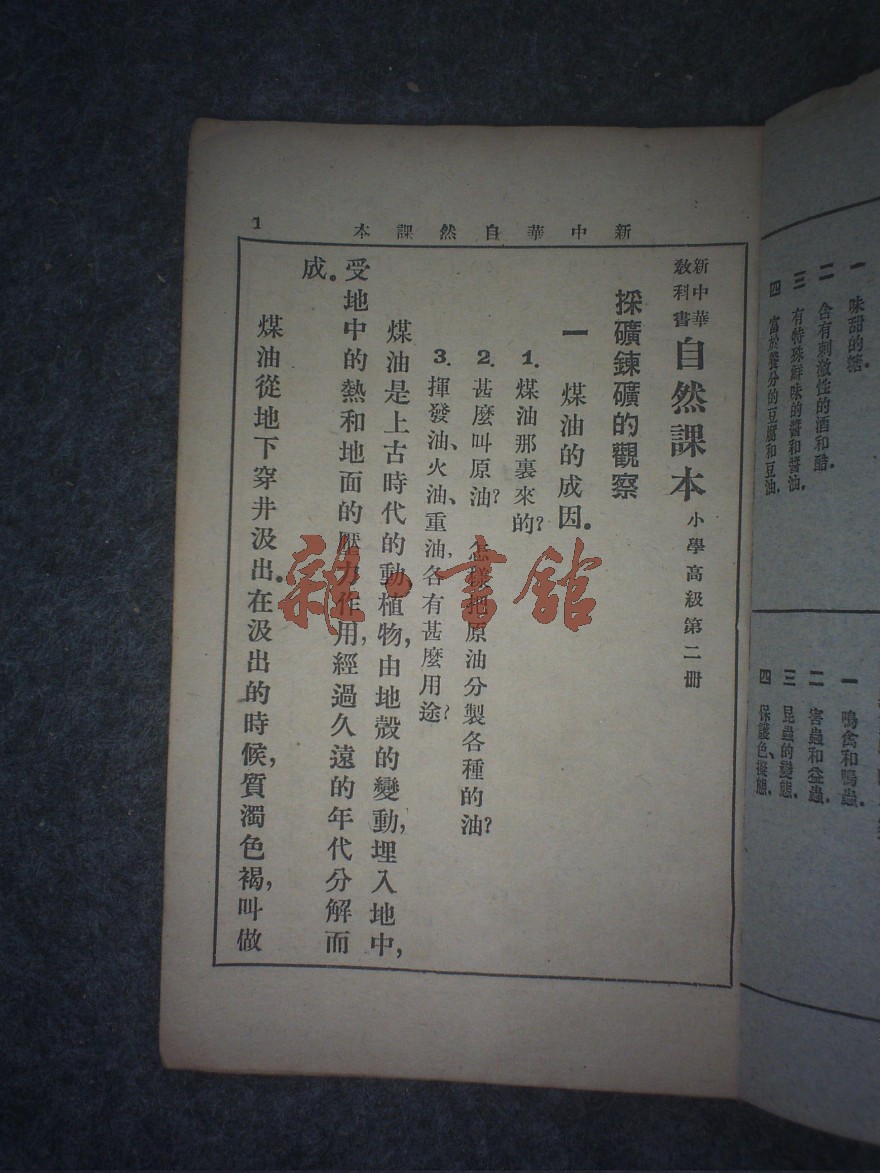 味甜的糖.
二 含有刺激性的酒和醋.
三 有特殊鮮味的醬和醬油.
四 富於養分的豆腐和豆油.
一 鳴禽和鳴蟲.
二 害蟲和益蟲.
三 昆蟲的變態.
四 保護色、擬態.
新中華自然課本
1
新中華教科書 自然課本 小學高級第二册
採礦鍊礦的觀察
一 煤油的成因.
1. 煤油那裏來的?
2. 甚麼叫原油? 怎樣把原油分製各種的油?
3. 揮發油、火油、重油,各有甚麼用途?
煤油是上古時代的動植物,由地殼的變動,埋入地中,
受地中的熱和地面的壓力作用,經過久遠的年代分解而
成.
煤油從地下穿井汲出.在汲出的時候,質濁色褐,叫做
雜·書館